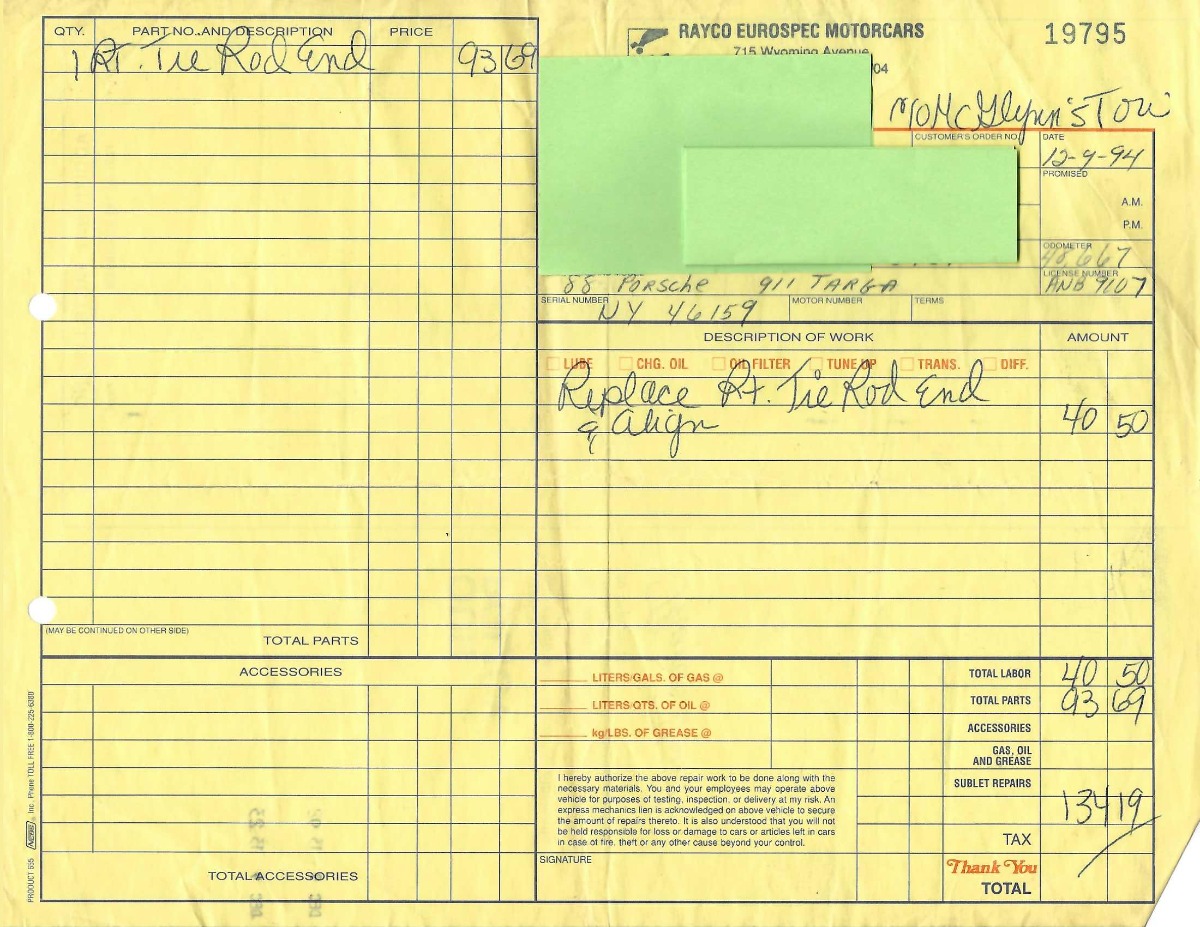 QTY. PART NO. AND DESCRIPTION PRICE
1 Rt. Tie Rod End 93 69
(MAY BE CONTINUED ON OTHER SIDE)
TOTAL PARTS
ACCESSORIES
TOTAL ACCESSORIES
PRODUCT 655 NEBS Inc. Phone TOLL FREE 1-800-225-6380
RAYCO EUROSPEC MOTORCARS 19795
715 Wyoming Avenue
04
McGlynn's Tow
CUSTOMER'S ORDER NO. DATE
12-9-94
PROMISED
A.M.
P.M.
ODOMETER
48667
LICENSE NUMBER
88 Porsche 911 TARGA ANB 9107
SERIAL NUMBER MOTOR NUMBER TERMS
NY 46159
DESCRIPTION OF WORK AMOUNT
LUBE CHG. OIL OIL FILTER TUNE UP TRANS. DIFF.
Replace Rt. Tie Rod End
& Align 40 50
LITERS/GALS. OF GAS @ TOTAL LABOR 40 50
LITERS/QTS. OF OIL @ TOTAL PARTS 93 69
kg/LBS. OF GREASE @ ACCESSORIES
GAS, OIL
AND GREASE
SUBLET REPAIRS
134 19
TAX
I hereby authorize the above repair work to be done along with the
necessary materials. You and your employees may operate above
vehicle for purposes of testing, inspection, or delivery at my risk. An
express mechanics lien is acknowledged on above vehicle to secure
the amount of repairs thereto. It is also understood that you will not
be held responsible for loss or damage to cars or articles left in cars
in case of fire, theft or any other cause beyond your control.
SIGNATURE
Thank You
TOTAL